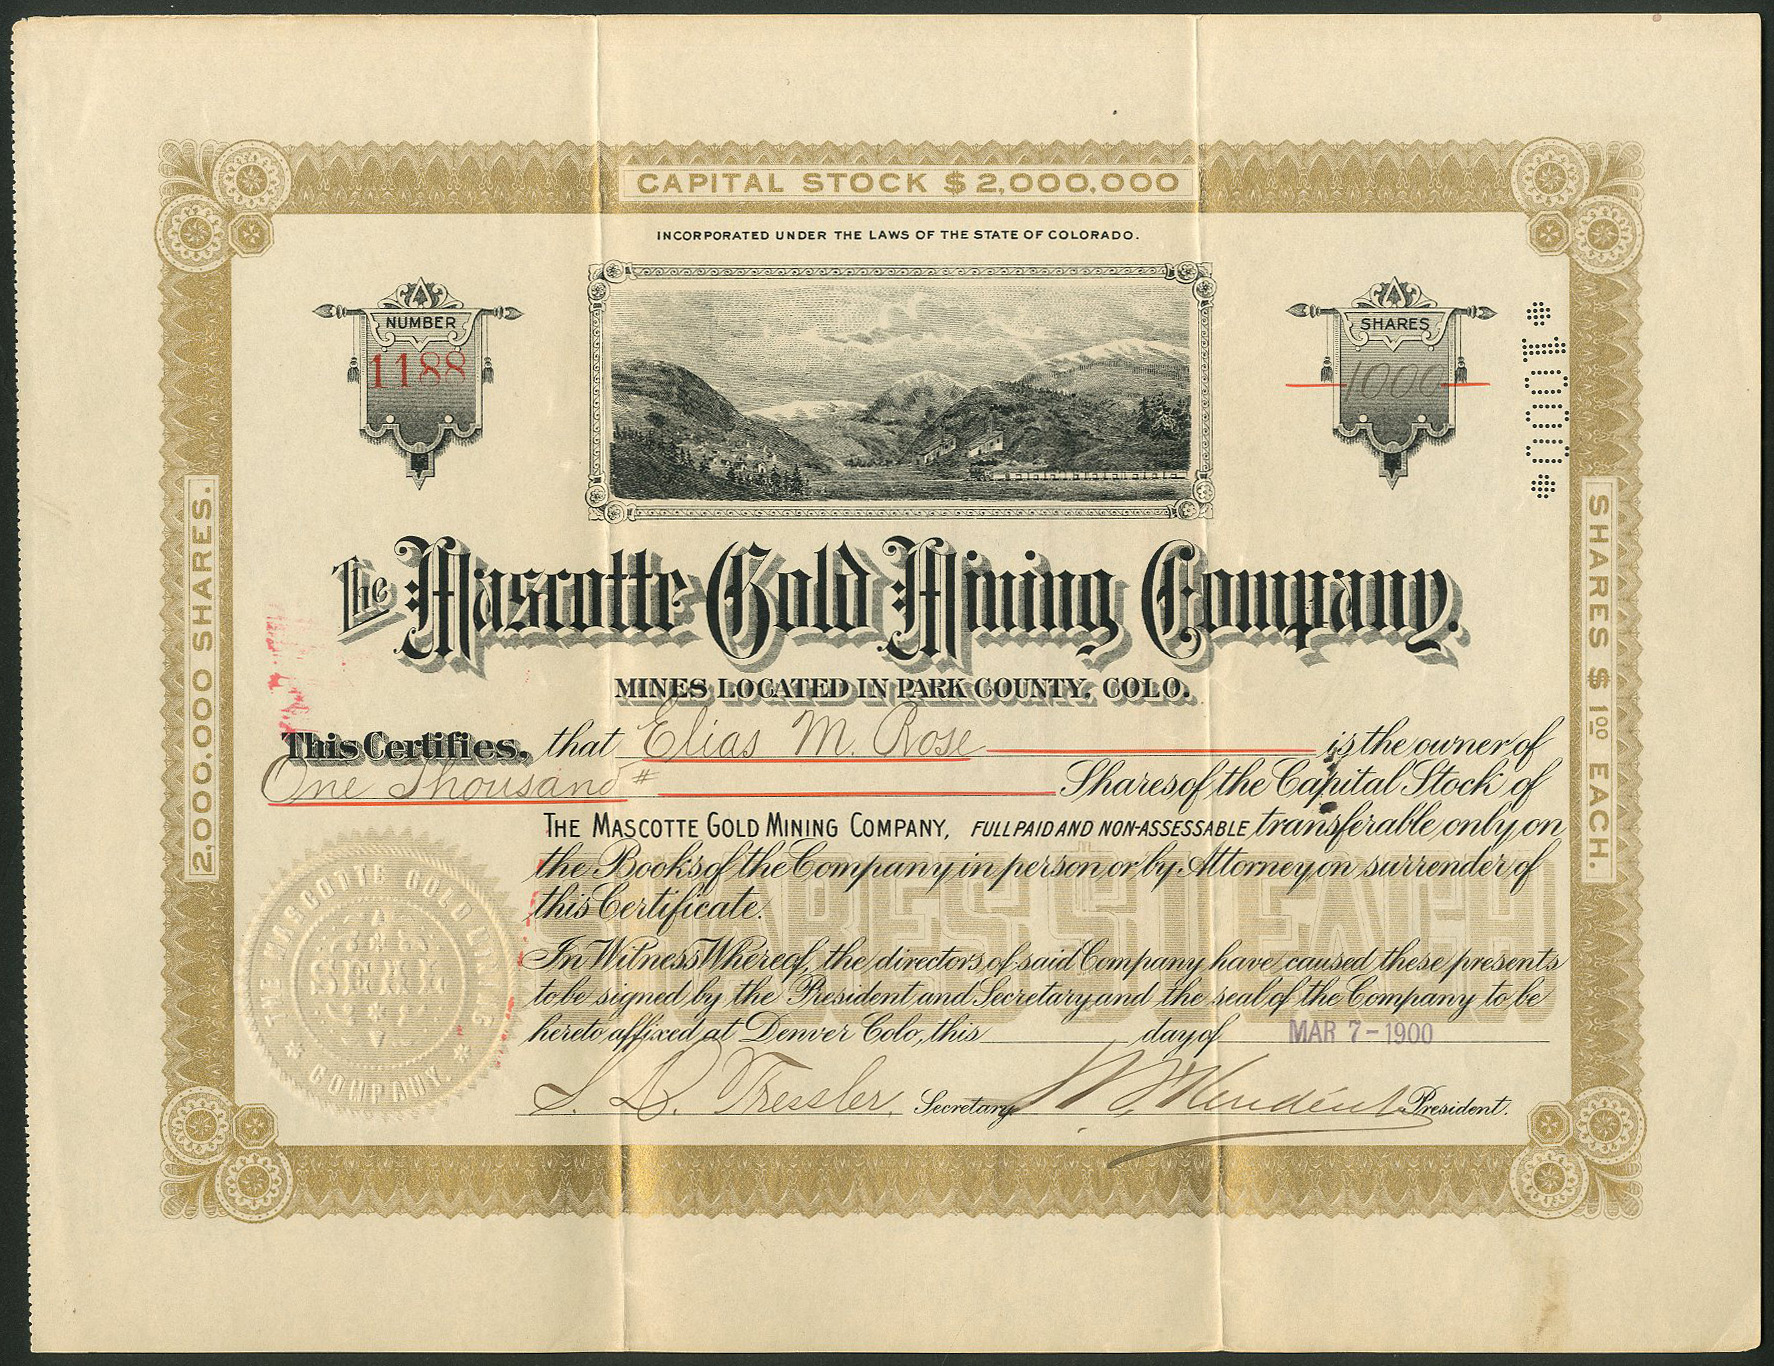 CAPITAL STOCK $2,000,000
INCORPORATED UNDER THE LAWS OF THE STATE OF COLORADO.
NUMBER
1188
SHARES
1000
*1000*
2,000,000 SHARES.
SHARES $1.00 EACH.
The Mascotte Gold Mining Company.
MINES LOCATED IN PARK COUNTY, COLO.
This Certifies, that Elias M. Rose is the owner of
One Thousand Shares of the Capital Stock of
THE MASCOTTE GOLD MINING COMPANY, FULL PAID AND NON-ASSESSABLE transferable only on
the Books of the Company in person or by Attorney on surrender of
this Certificate.
SHARES $1 EACH
In Witness Whereof, the directors of said Company have caused these presents
to be signed by the President and Secretary and the seal of the Company to be
hereto affixed at Denver Colo, this day of MAR 7-1900
S. L. Tressler Secretary President.
THE MASCOTTE GOLD MINING
SEAL
COMPANY.